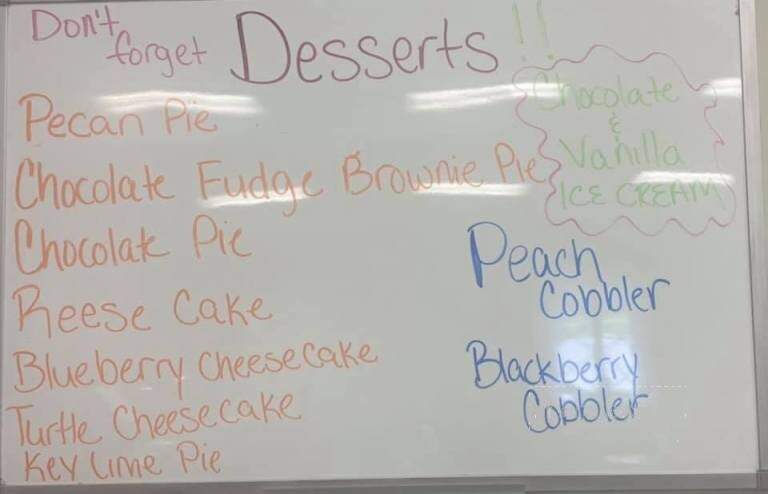 Don't
forget
Desserts!!
Pecan Pie
Chocolate Fudge Brownie Pie
Chocolate Pie
Reese Cake
Blueberry Cheesecake
Turtle Cheesecake
Key Lime Pie
Chocolate
&
Vanilla
ICE CREAM
Peach
Cobbler
Blackberry
Cobbler